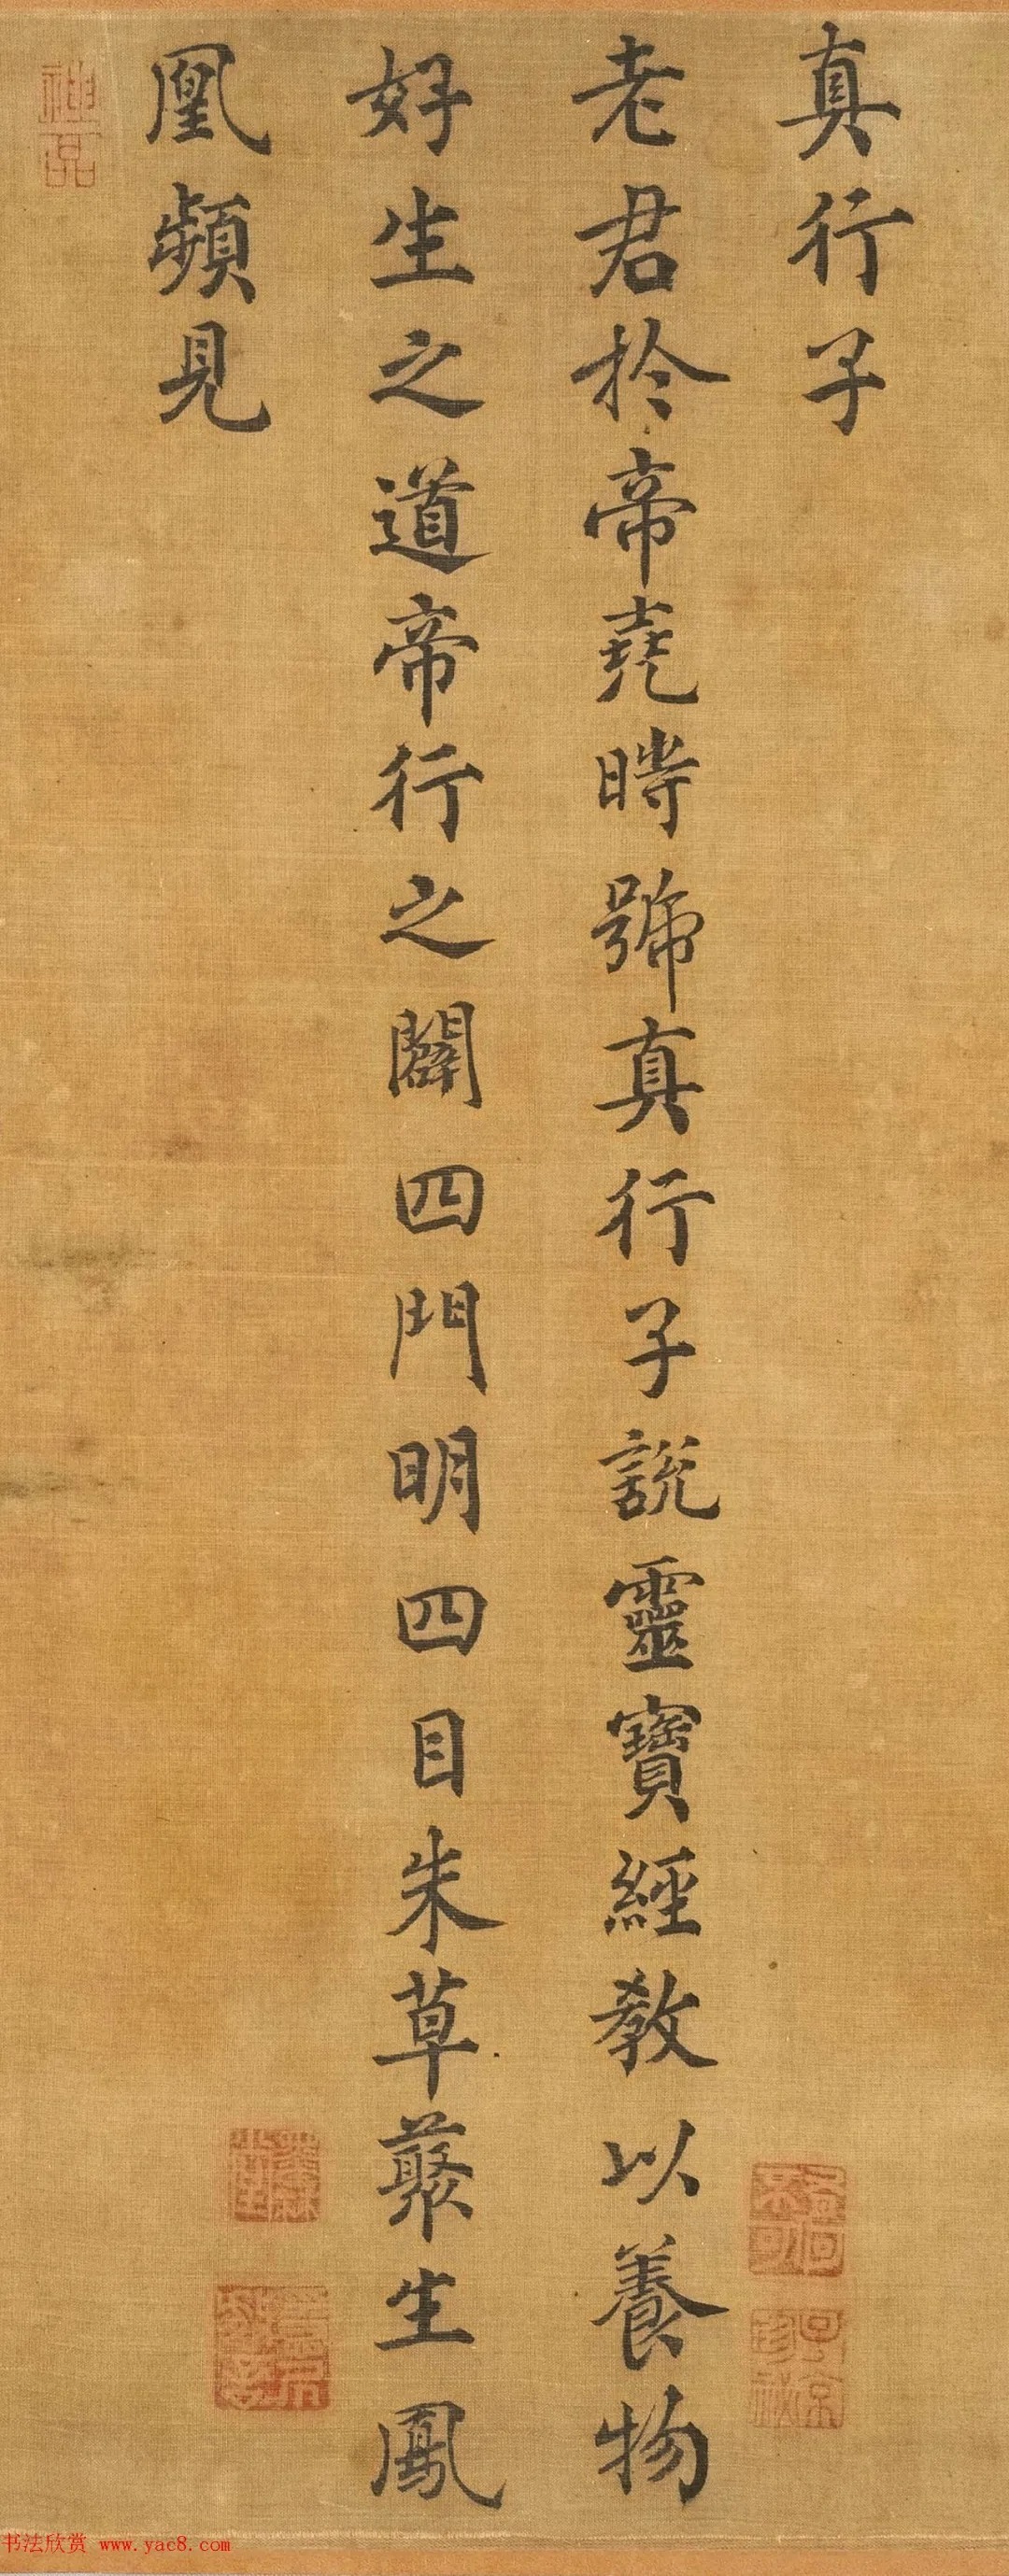 真行子
老君於帝堯時號真行子說靈寶經教以養物
好生之道帝行之闢四門明四目朱草藂生鳳
凰頻見
神品
子京
书法欣赏 www.yac8.com